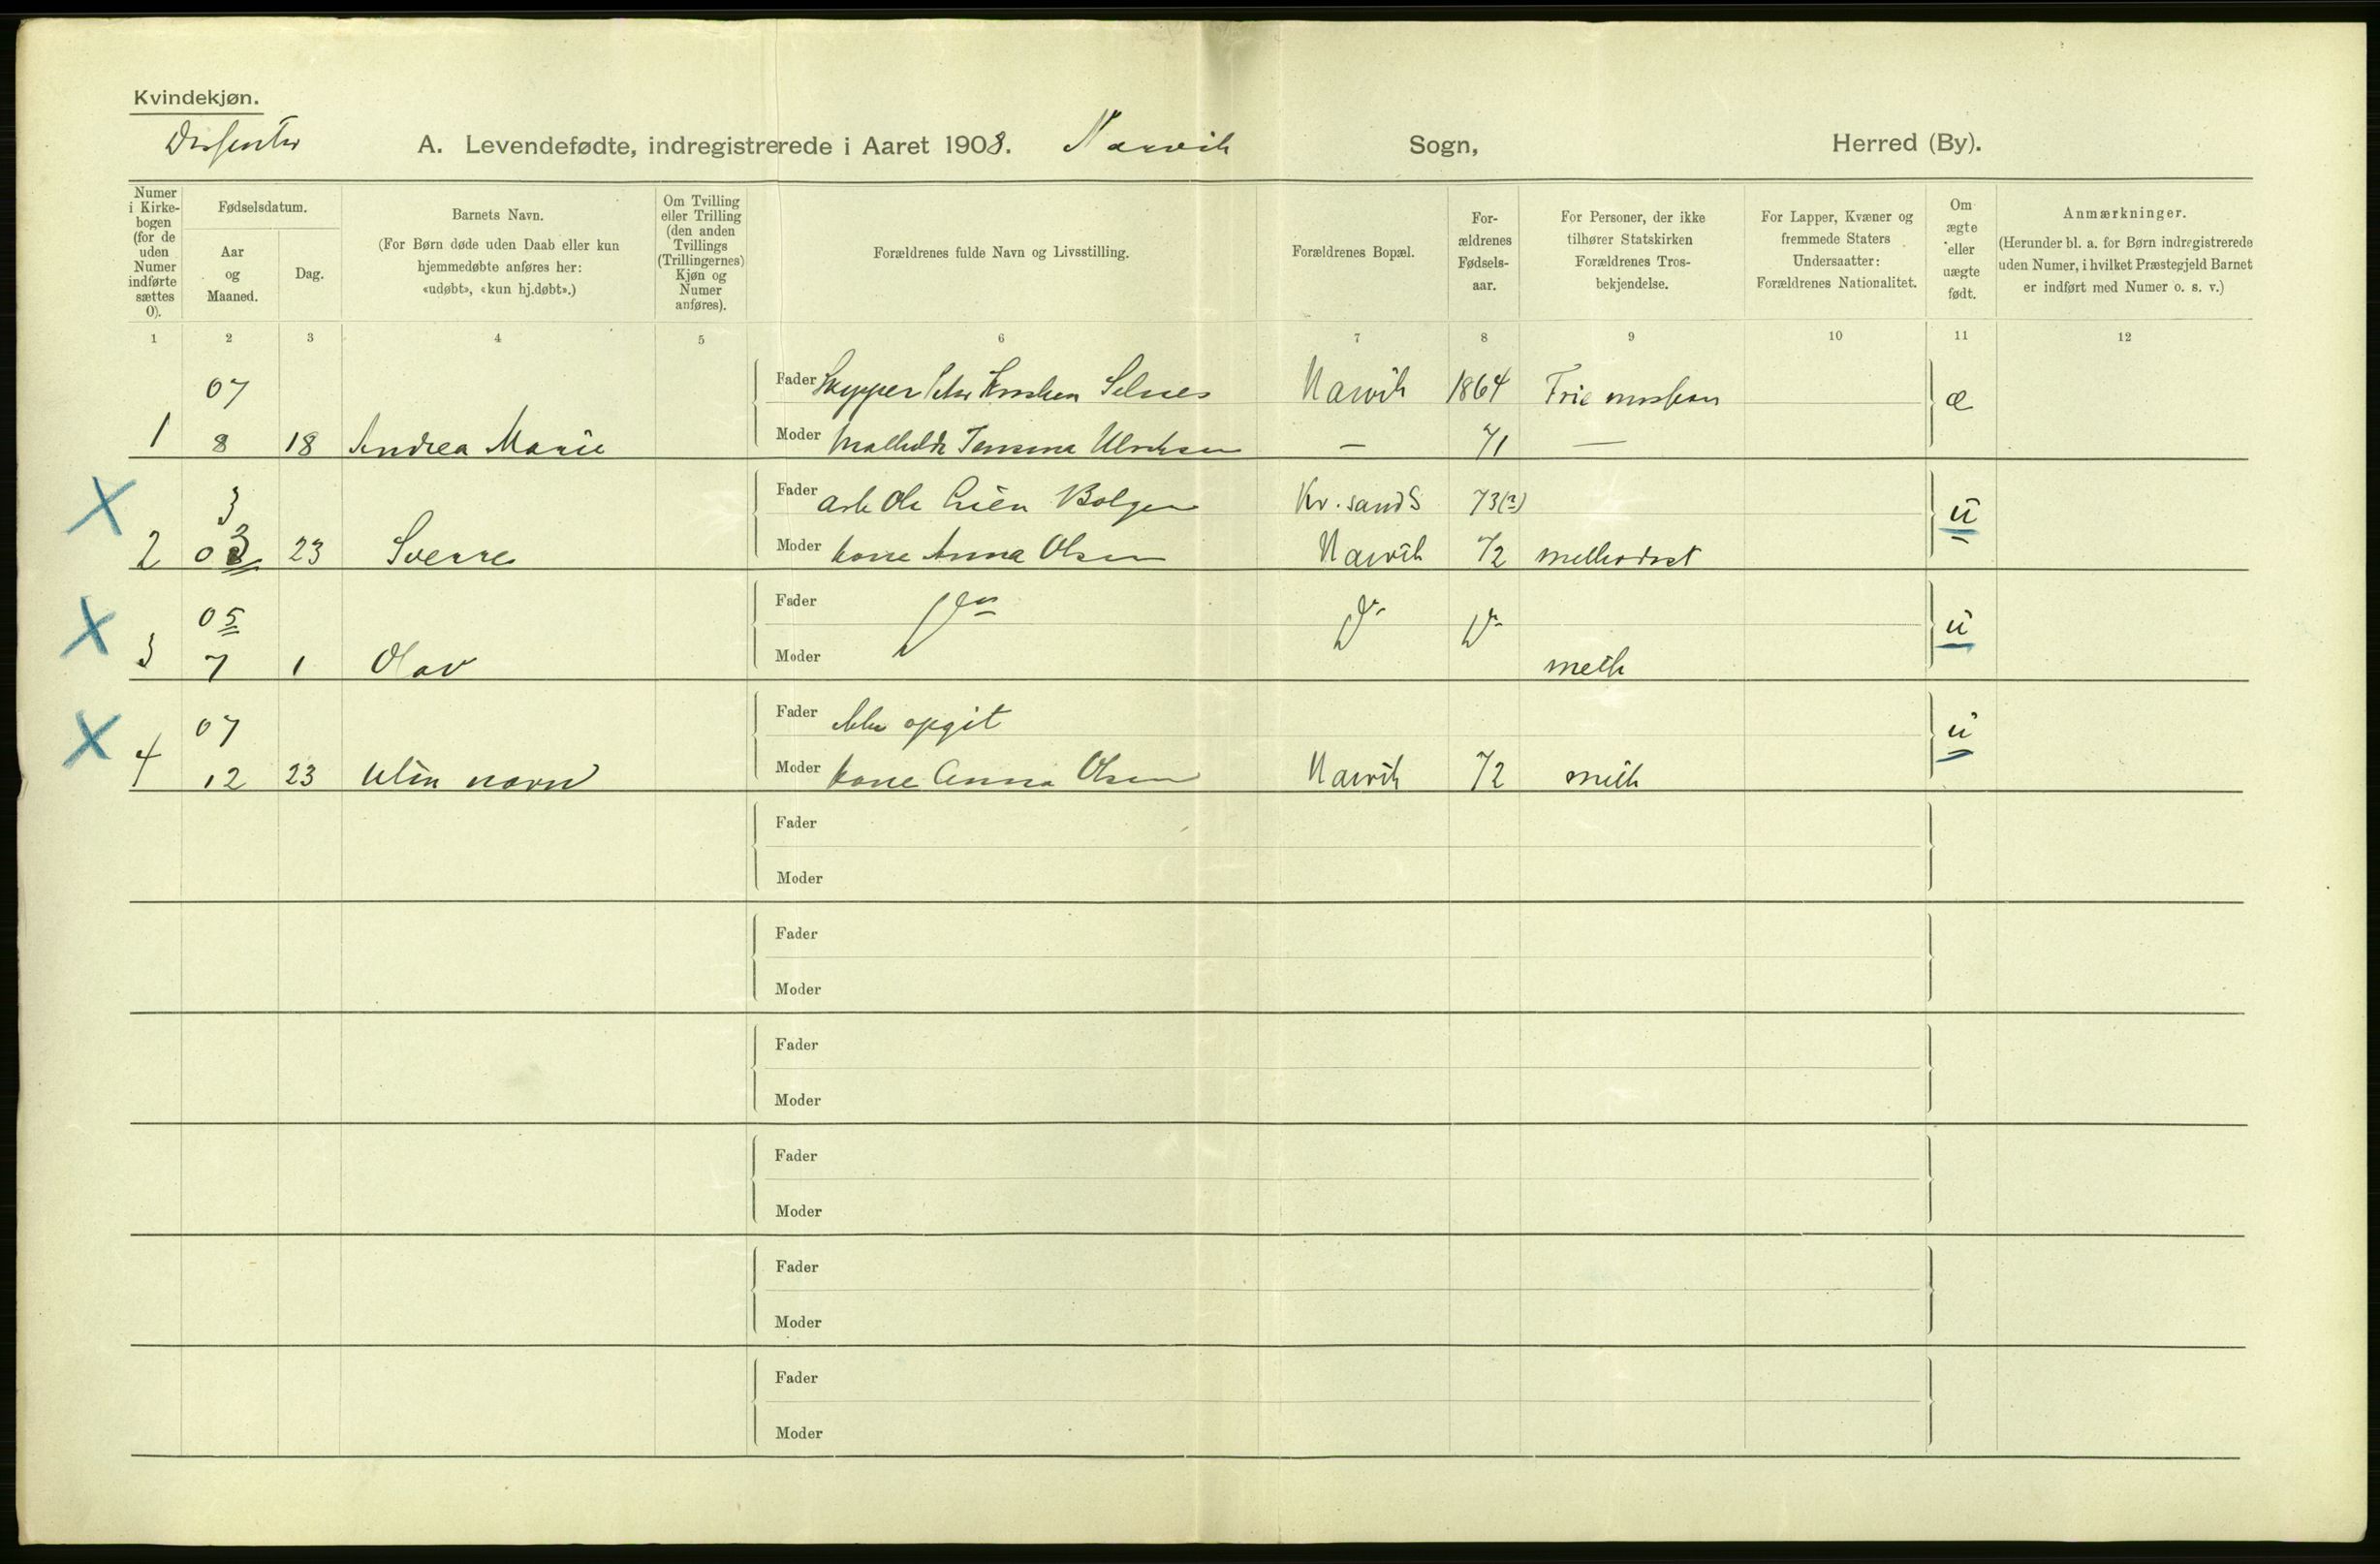 Kvindekjøn.
Dissenter
A. Levendefødte, indregistrerede i Aaret 1908. Narvik Sogn, Herred (By).
Numer i Kirkebogen (for de uden Numer indførte sættes 0).
Fødselsdatum.
Aar og Maaned.
Dag.
Barnets Navn.
(For Børn døde uden Daab eller kun hjemmedøbte anføres her: «udøbt», «kun hj.døbt».)
Om Tvilling eller Trilling (den anden Tvillings (Trillingernes) Kjøn og Numer anføres).
Forældrenes fulde Navn og Livsstilling.
Forældrenes Bopæl.
For-ældrenes Fødsels-aar.
For Personer, der ikke tilhører Statskirken Forældrenes Tros-bekjendelse.
For Lapper, Kvæner og fremmede Staters Undersaatter: Forældrenes Nationalitet.
Om ægte eller uægte født.
Anmærkninger.
(Herunder bl. a. for Børn indregistrerede uden Numer, i hvilket Præstegjeld Barnet er indført med Numer o. s. v.)
1 2 3 4 5 6 7 8 9 10 11 12
07 Fader Skipper Selnes Narvik 1864 Frie æ
1 8 18 Andrea Marie Moder Mathilde Jensine Ulriksen — 71 —
X 3 Fader arb Ole Lien Bolgen Kr.sand S 73(?) u
2 03 23 Sverre Moder kone Anna Olsen Narvik 72 methodist
X 05 Fader do do do u
3 7 1 Olav Moder meth
X 07 Fader ikke opgit u
4 12 23 Uten navn Moder kone Anna Olsen Narvik 72 meth
Fader
Moder
Fader
Moder
Fader
Moder
Fader
Moder
Fader
Moder
Fader
Moder